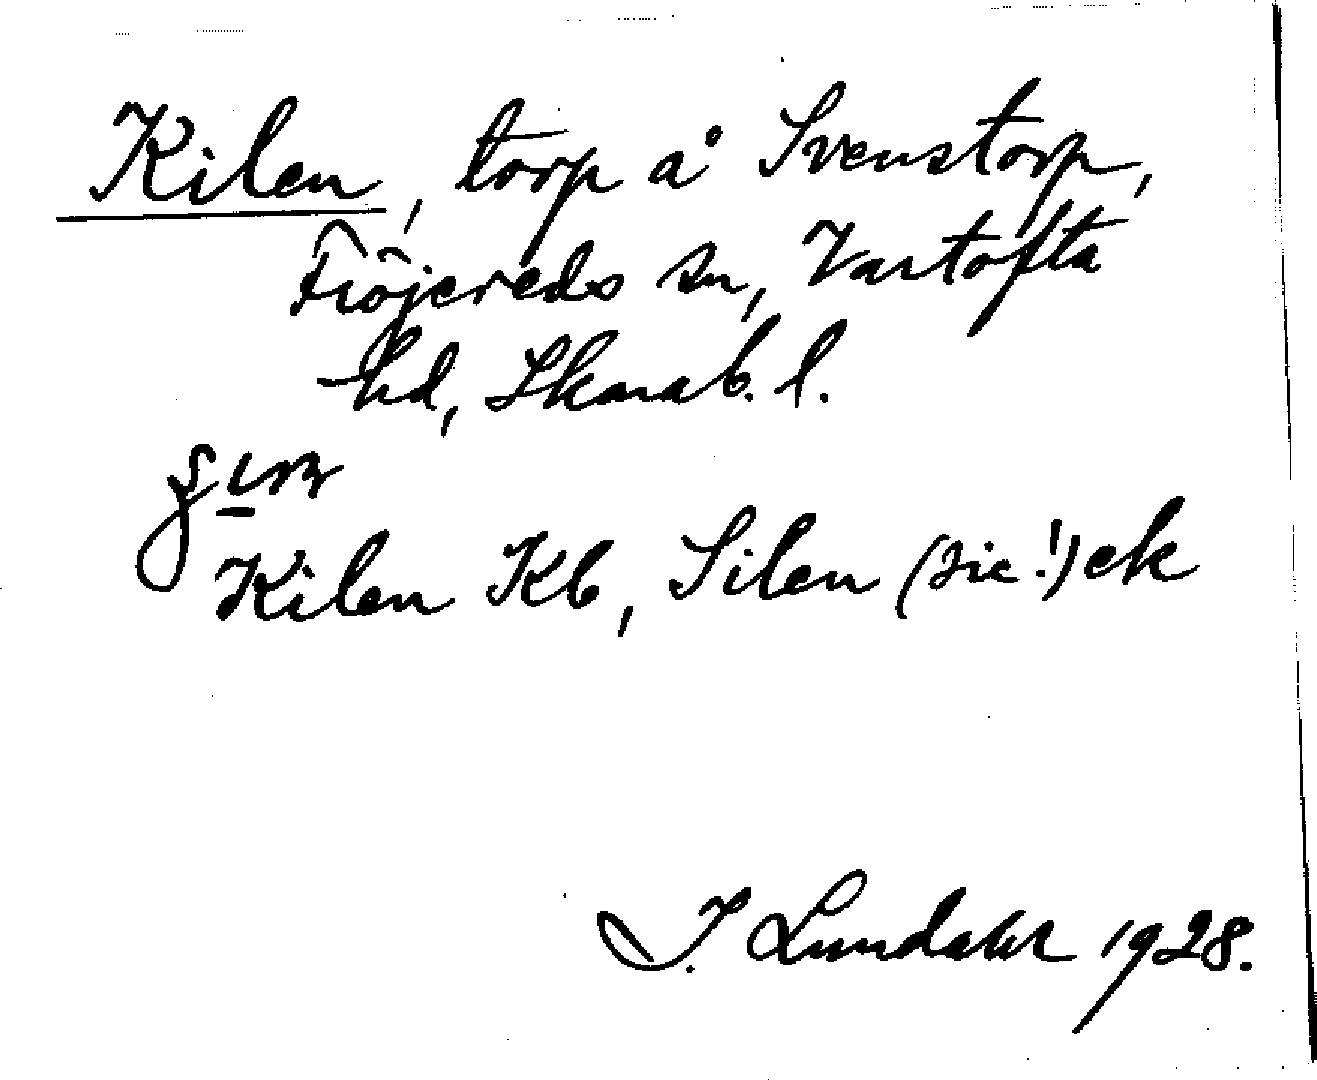 Kilen, torp å Svenstorp,
Fröjereds sn, Vartofta
hd, Skarab. l.
Kilen Kb, Silen (sic!) ek
I. Lundahl 1928.